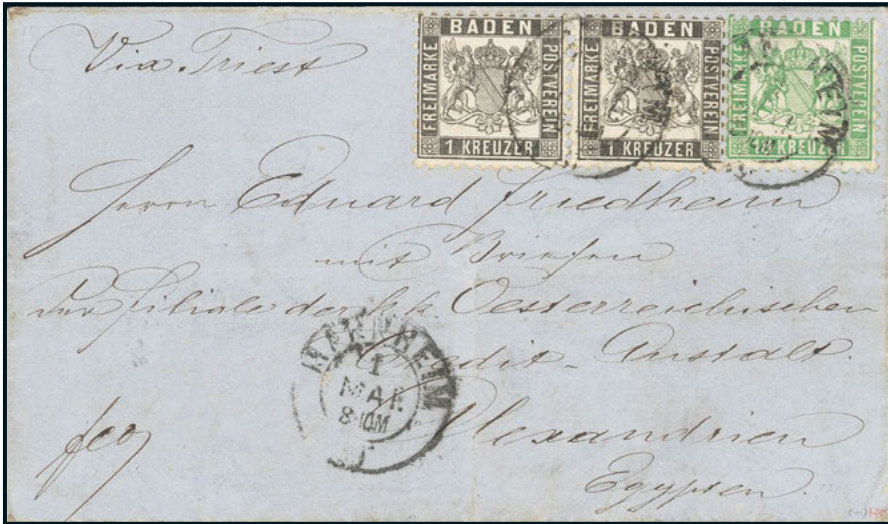 Via Triest
BADEN
FREIMARKE
POSTVEREIN
1 KREUZER
BADEN
FREIMARKE
POSTVEREIN
1 KREUZER
BADEN
FREIMARKE
POSTVEREIN
KREUZER
Herrn Eduard Friedheim
mit Briefen
der Filiale der k k Oesterreichischen
Credit-Anstalt.
Alexandrien
Egypten.
MANNHEIM
1
MAR
fco